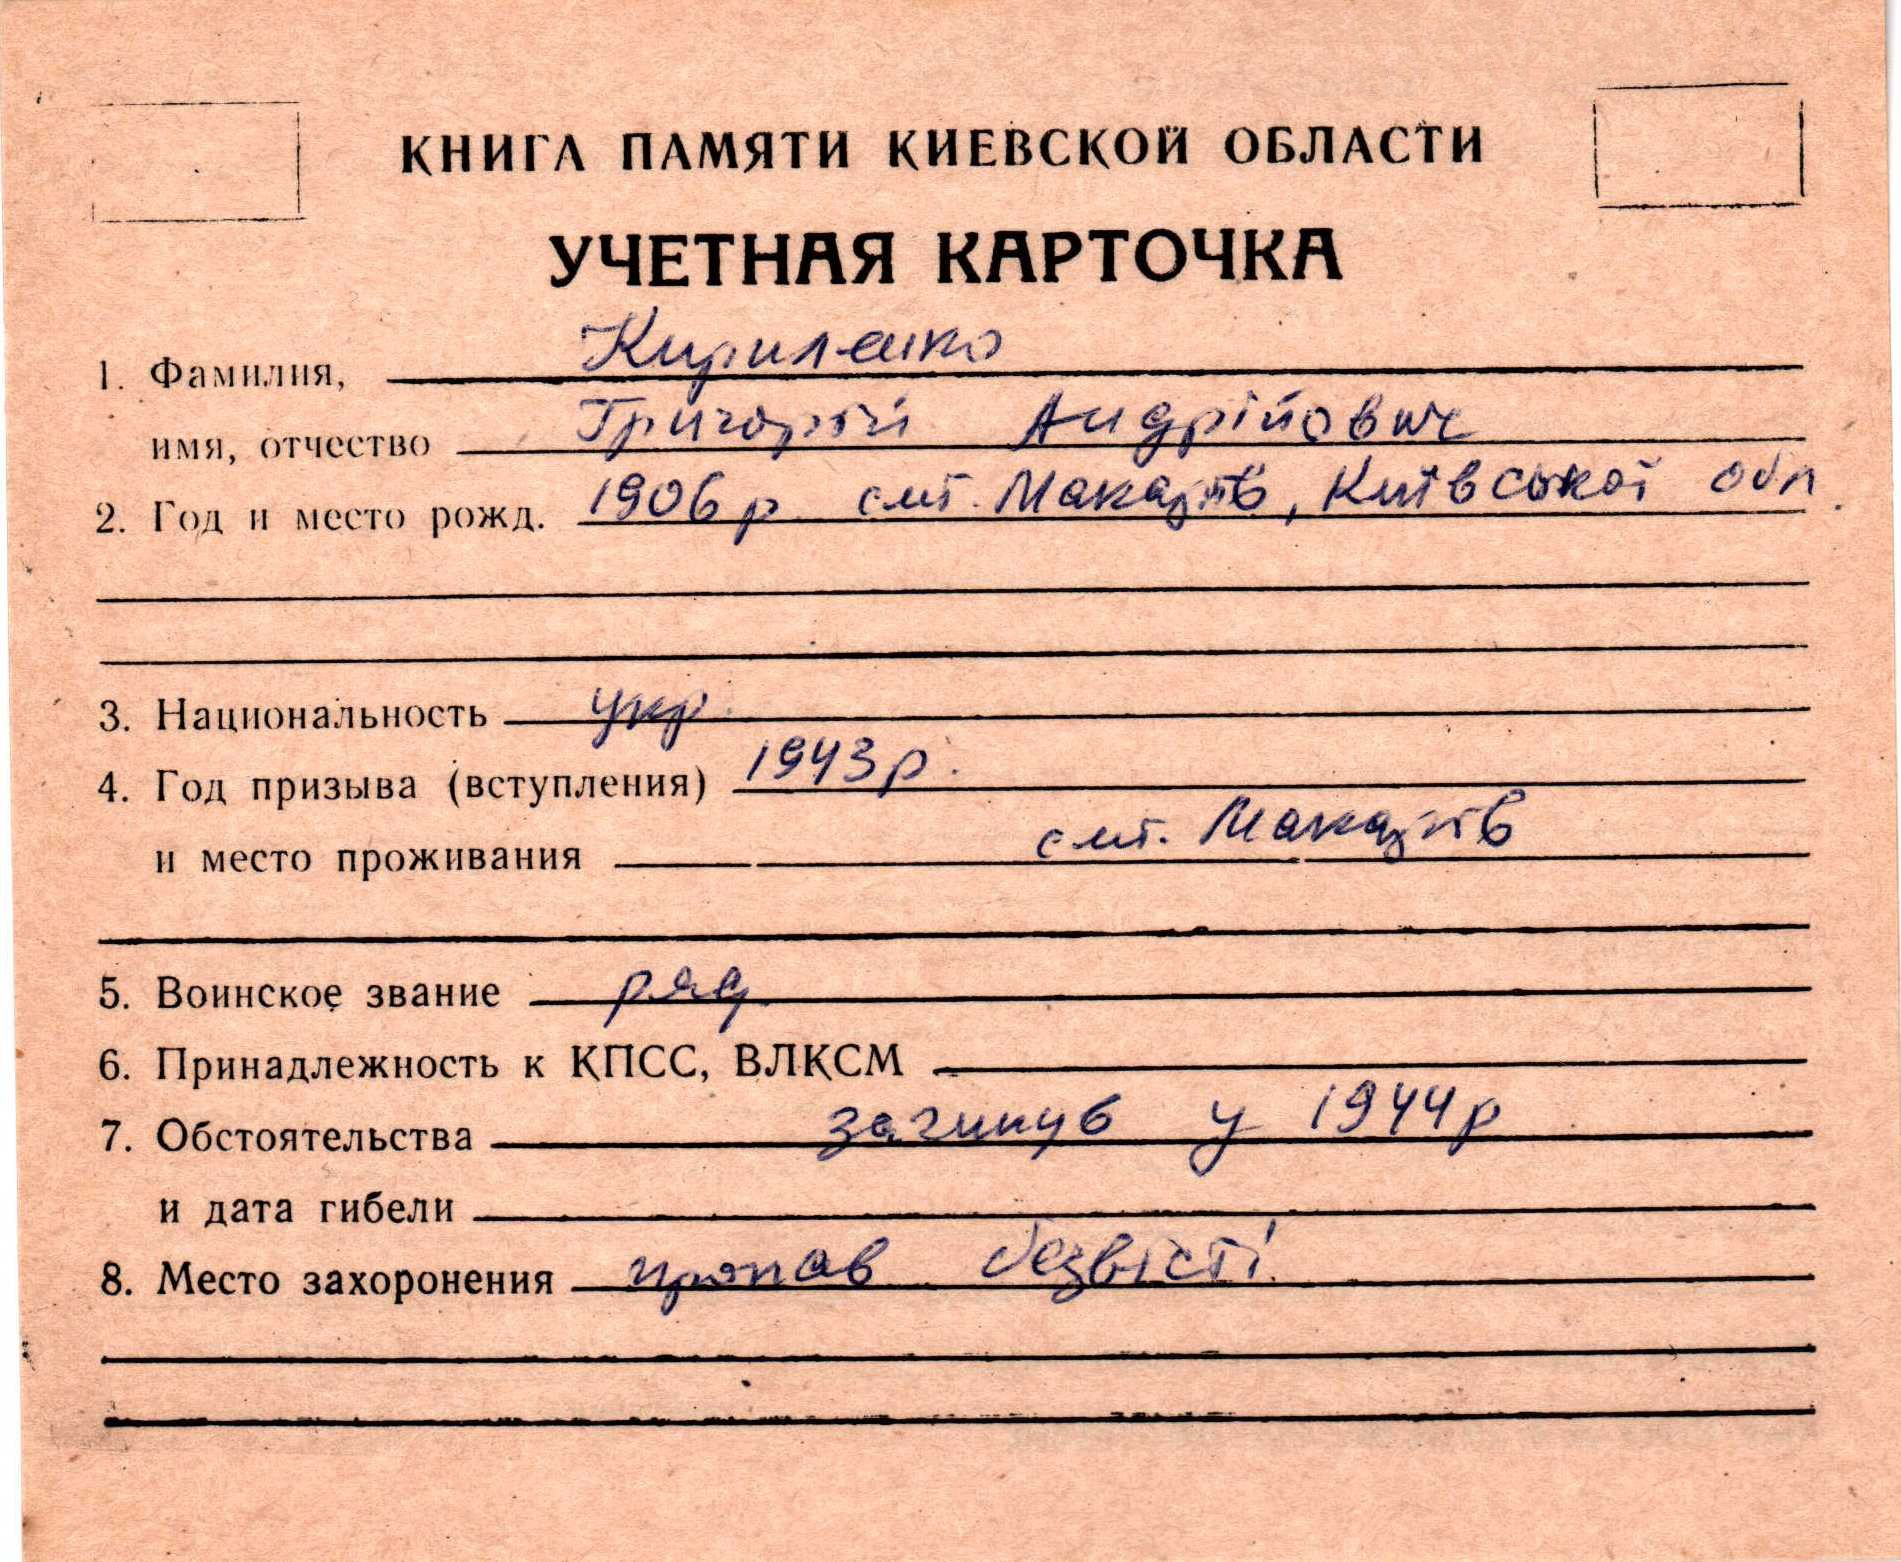 КНИГА ПАМЯТИ КИЕВСКОЙ ОБЛАСТИ
УЧЕТНАЯ КАРТОЧКА
1. Фамилия, Кириленко
имя, отчество Григорій Андрійович
2. Год и место рожд. 1906 р. смт. Макарів, Київської обл.
3. Национальность укр.
4. Год призыва (вступления) 1943 р.
и место проживания смт. Макарів
5. Воинское звание ряд.
6. Принадлежность к КПСС, ВЛКСМ
7. Обстоятельства загинув у 1944 р
и дата гибели
8. Место захоронения пропав безвісті